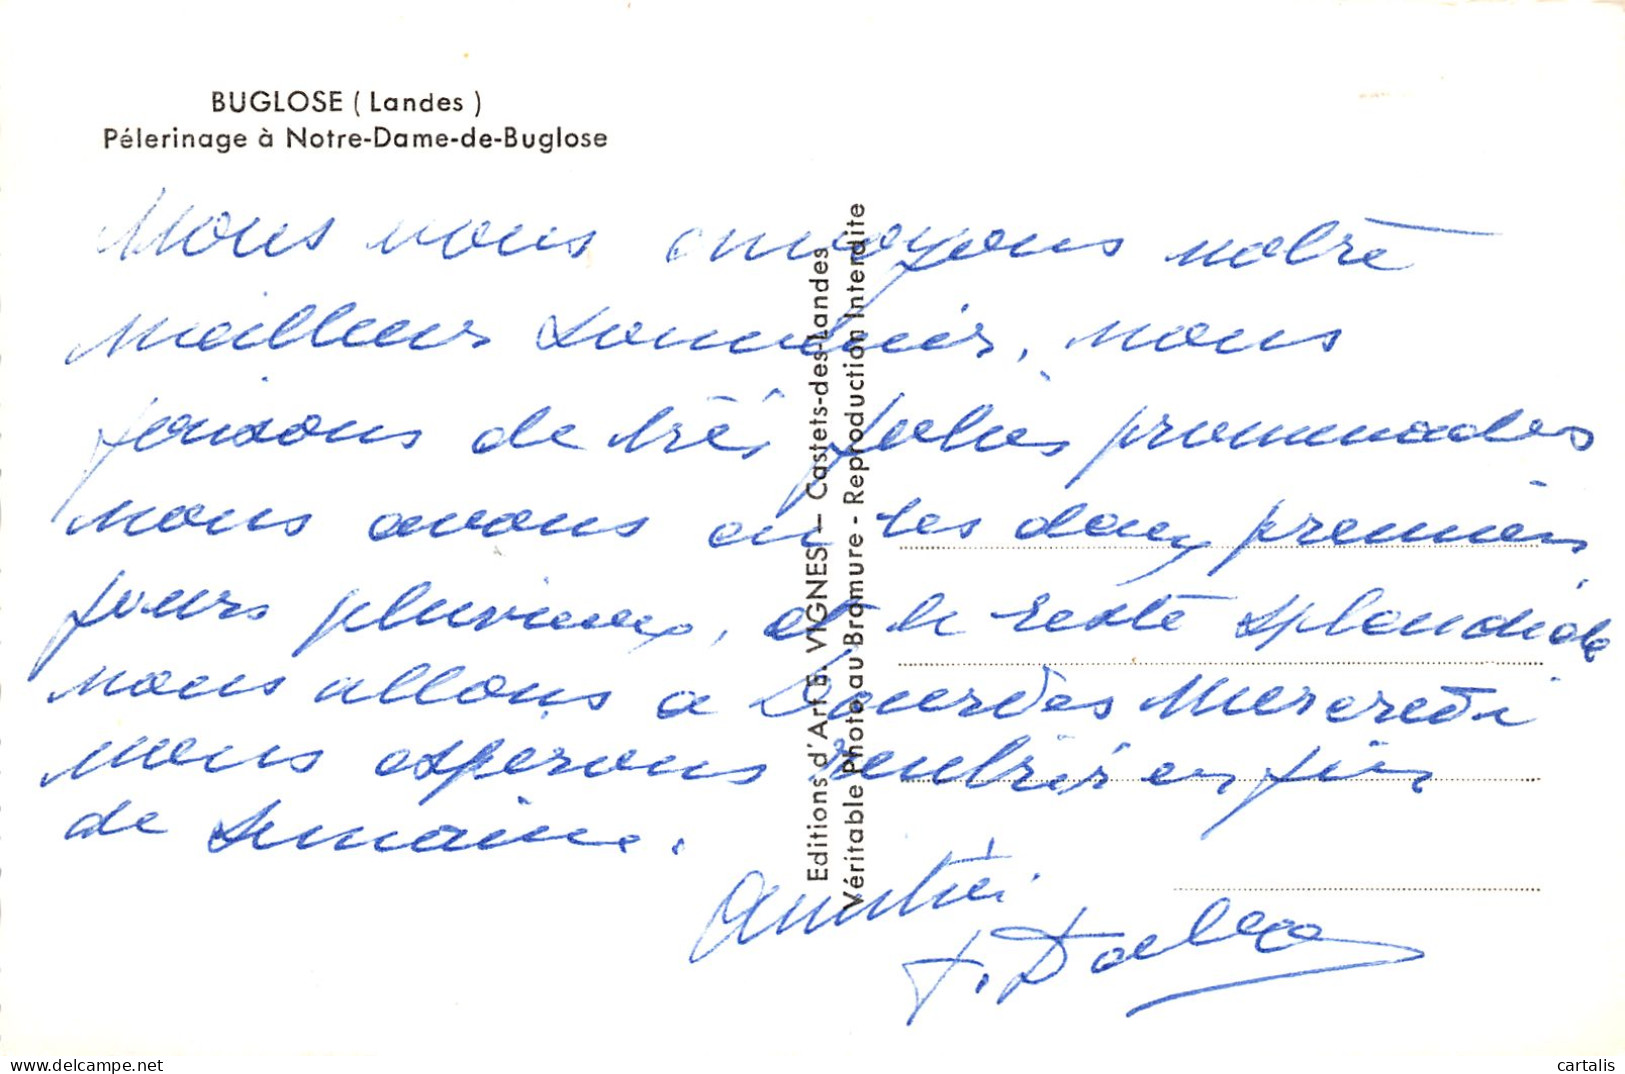 BUGLOSE ( Landes )
Pélerinage à Notre-Dame-de-Buglose
Nous vous envoyons notre
meilleur souvenir, nous
faisons de très jolies promenades
nous avons eu les deux premiers
jours pluvieux, et le reste splendide
nous allons a Lourdes Mercredi
nous esperons rentrir en fin
de semaine.
Amitié
Editions d'Art E. VIGNES — Castets-des-Landes
Véritable Photo au Bromure - Reproduction Interdite
cartalis